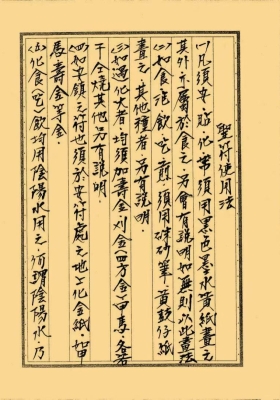 聖符使用法
(1)凡須安、貼、化、常須用黑色墨水黃紙畫之
其外不屬於食之、另會有說明如無則以此畫法
(2)如食、洗、它、煎、須用硃砂筆、黃款仔紙
畫之、其他種者、另有說明。
(3)如過化大者、均須加壽金、刈金、四方金、甲馬、各若
干全燒其他另有說明。
(4)如安鎮之符也須於安符處之地上化金紙、如甲
馬壽金等金。
(5)化食(它)飲均用陰陽水用之、何謂陰陽水、乃